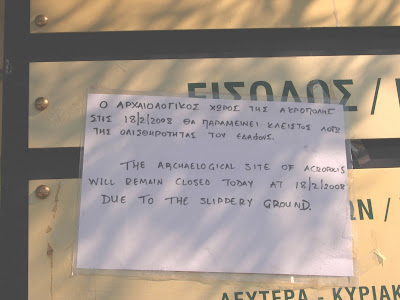 ΕΙΣΟΔΟΣ /
Ο ΑΡΧΑΙΟΛΟΓΙΚΟΣ ΧΩΡΟΣ ΤΗΣ ΑΚΡΟΠΟΛΗΣ
ΣΤΙΣ 18/2/2008 ΘΑ ΠΑΡΑΜΕΙΝΕΙ ΚΛΕΙΣΤΟΣ ΛΟΓΩ
ΤΗΣ ΟΛΙΣΘΗΡΟΤΗΤΑΣ ΤΟΥ ΕΔΑΦΟΥΣ.
THE ARCHAELOGICAL SITE OF ACROPOLIS
WILL REMAIN CLOSED TODAY AT 18/2/2008
DUE TO THE SLIPPERY GROUND.
ΩΝ /
ΔΕΥΤΕΡΑ - ΚΥΡΙΑΚ